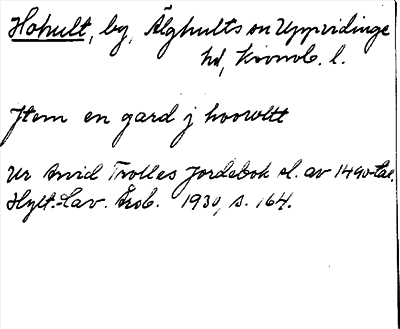 Hohult, by, Älghults sn Uppvidinge
hd, Kronob. l.
Item en gard j hoowltt
Ur Arvid Trolles Jordebok sl. av 1490-tal.
Hylt.-Cav. Årsb. 1930, s. 164.